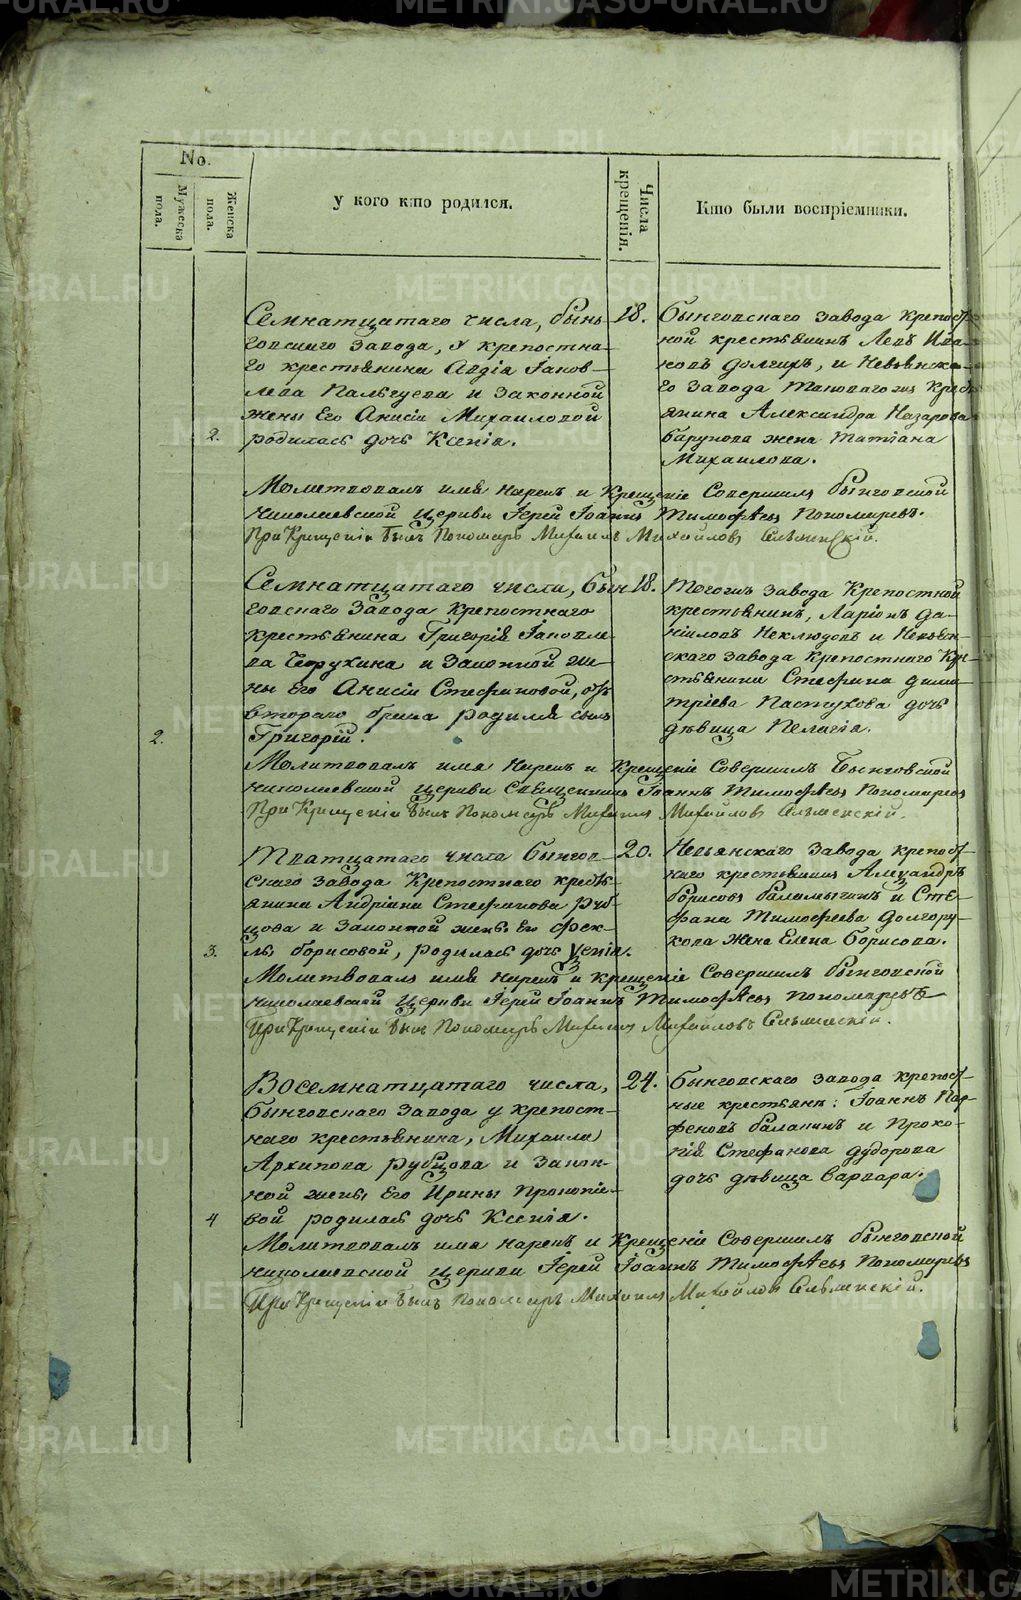 METRIKI.GASO-URAL.RU
No.
Мужеска пола.
Женска пола.
У кого кто родился.
Числа крещенія.
Кто были воспріемники.
2.
Семнатцатаго числа, бынь-
говскаго завода, у крепостна-
го крестьянина Авдія Іаков-
лева Пальцева и законной
жены Его Анисіи Михаиловой
родилась дочь Ксенія.
18.
Бынговскаго завода Крепост-
ной крестьянинъ Левъ Ива-
новъ Долгихъ, и Невьянска-
го завода таковагожъ Крест
янина Александра Назарова
Барунова жена Татіана
Михаилова.
Молитвовалъ имя нарекъ и Крещеніе Совершилъ Бынговской
Николаевской Церкви Іерей Іоаннъ Тимофѣевъ Пономаревъ.
При Крещеніи былъ Пономарь Михаилъ Михайловъ
2.
Семнатцатаго числа, Бын
говскаго завода Крепостнаго
крестьянина Григорія Іаковле-
ва и Законной же-
ны Его Анисіи Стефановой, отъ
втораго брака родился сынъ
Григорій.
18.
Тогожъ завода Крепостной
крестьянинъ, Ларіонъ Да-
ніиловъ Неклюдовъ и Невьян-
скаго завода крепостнаго Кре-
стьянина Стефана Дими-
тріева Пастухова дочь
дѣвица Пелагія.
Молитвовалъ имя Нарекъ и Крещеніе Совершилъ Бынговской
Николаевской Церкви Священникъ Іоаннъ Тимофѣевъ Пономаревъ
При Крещеніи былъ Пономарь Михаилъ Михайловъ
3.
Тватцатаго числа Бынгов-
скаго завода Крепостнаго крестъ-
янина Андріана Стефанова Руб-
цова и Законной жены Его Фек-
лы Борисовой, родилась дочь
20.
Невьянскаго завода крепост-
наго крестьянина Александръ
Борисовъ и Сте-
фана Тимофеева Долгору-
кова Жена Елена Борисова.
Молитвовалъ имя Нарекъ и Крещеніе Совершилъ Бынговской
Николаевской Церкви Іерей Іоаннъ Тимофѣевъ Пономаревъ
При Крещеніи былъ Пономарь Михаилъ Михайловъ
4
Восемнатцатаго числа,
Бынговскаго завода у крепост-
наго крестьянина, Михаила
Архипова Рубцова и Закон-
ной жены Его Ирины Прокопіе-
вой родилась дочь Ксенія.
24.
Бынговскаго завода крепост-
ные крестьяне: Іоаннъ Пар-
феновъ Балакинъ и Проко-
пія Стефанова Дудорова
дочь дѣвица Варвара.
Молитвовалъ имя нарекъ и Крещеніе Совершилъ Бынговской
Николаевской Церкви Іерей Іоаннъ Тимофѣевъ Пономаревъ
При Крещеніи былъ Пономарь Михаилъ Михайловъ